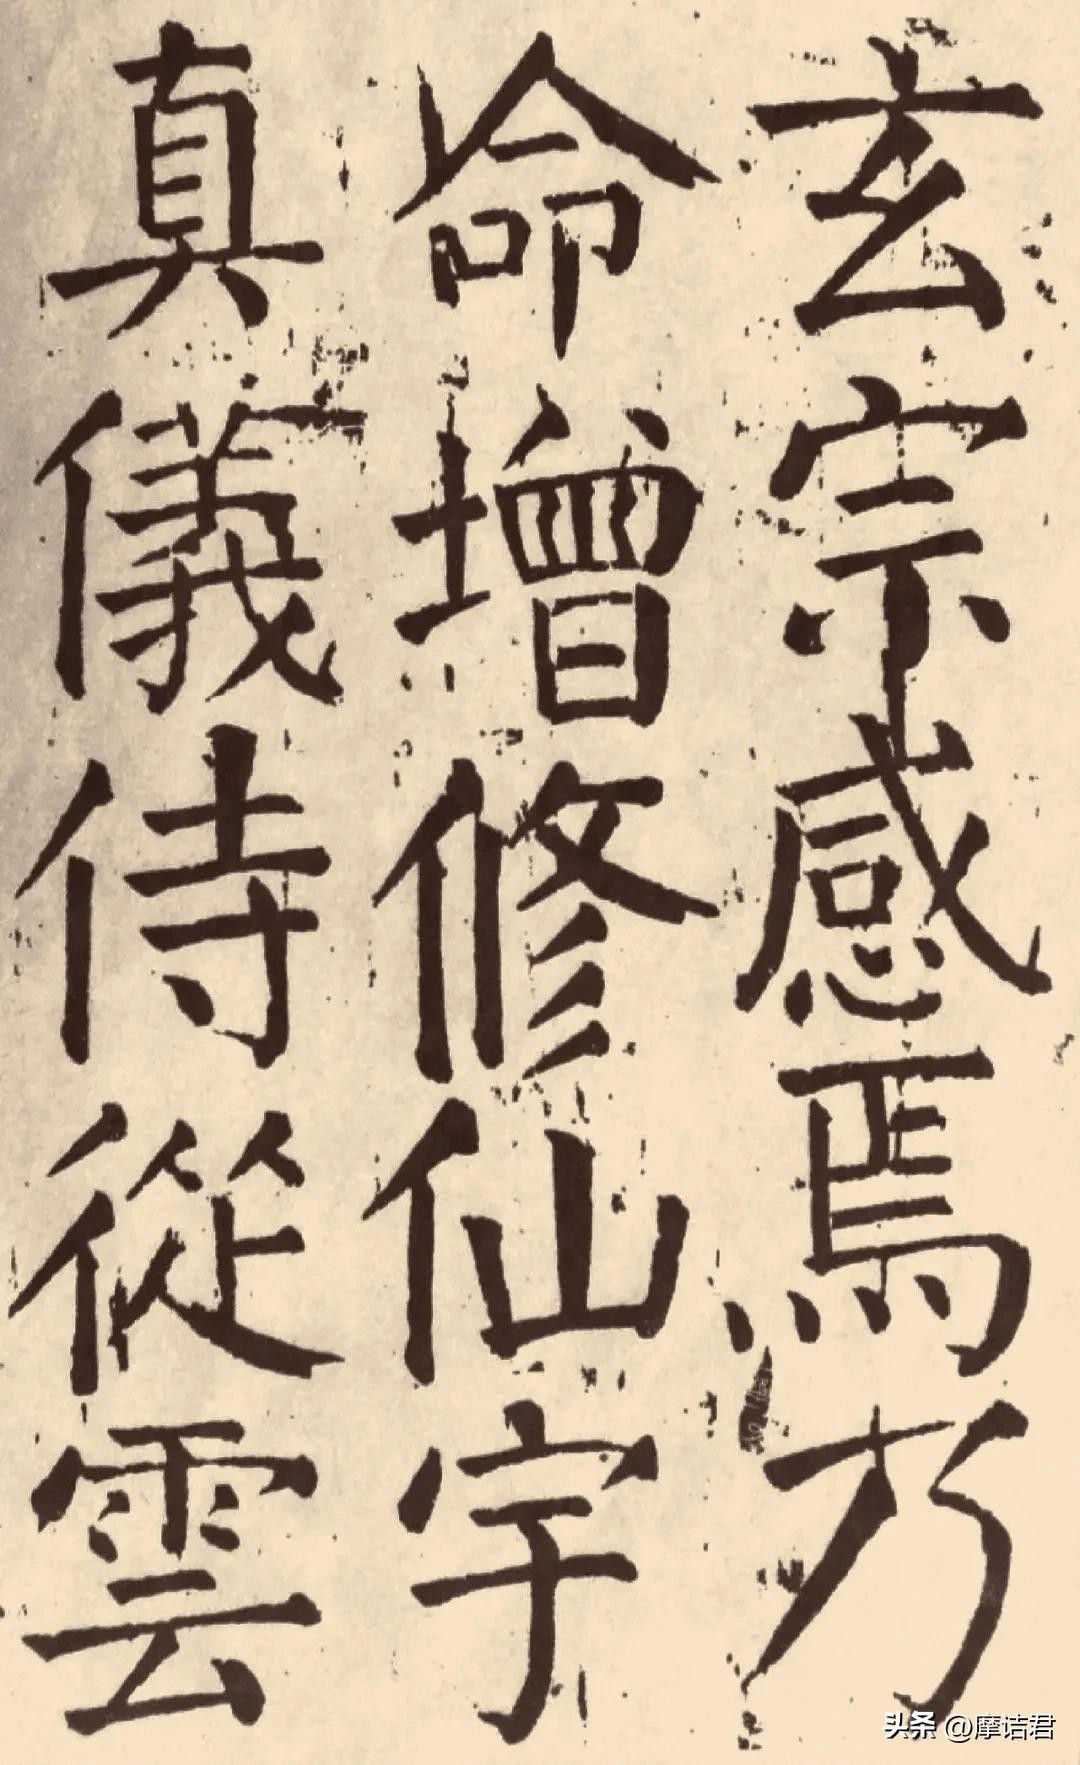 玄宗感焉乃
命增修仙宇
真儀侍從雲
头条 @摩诘君